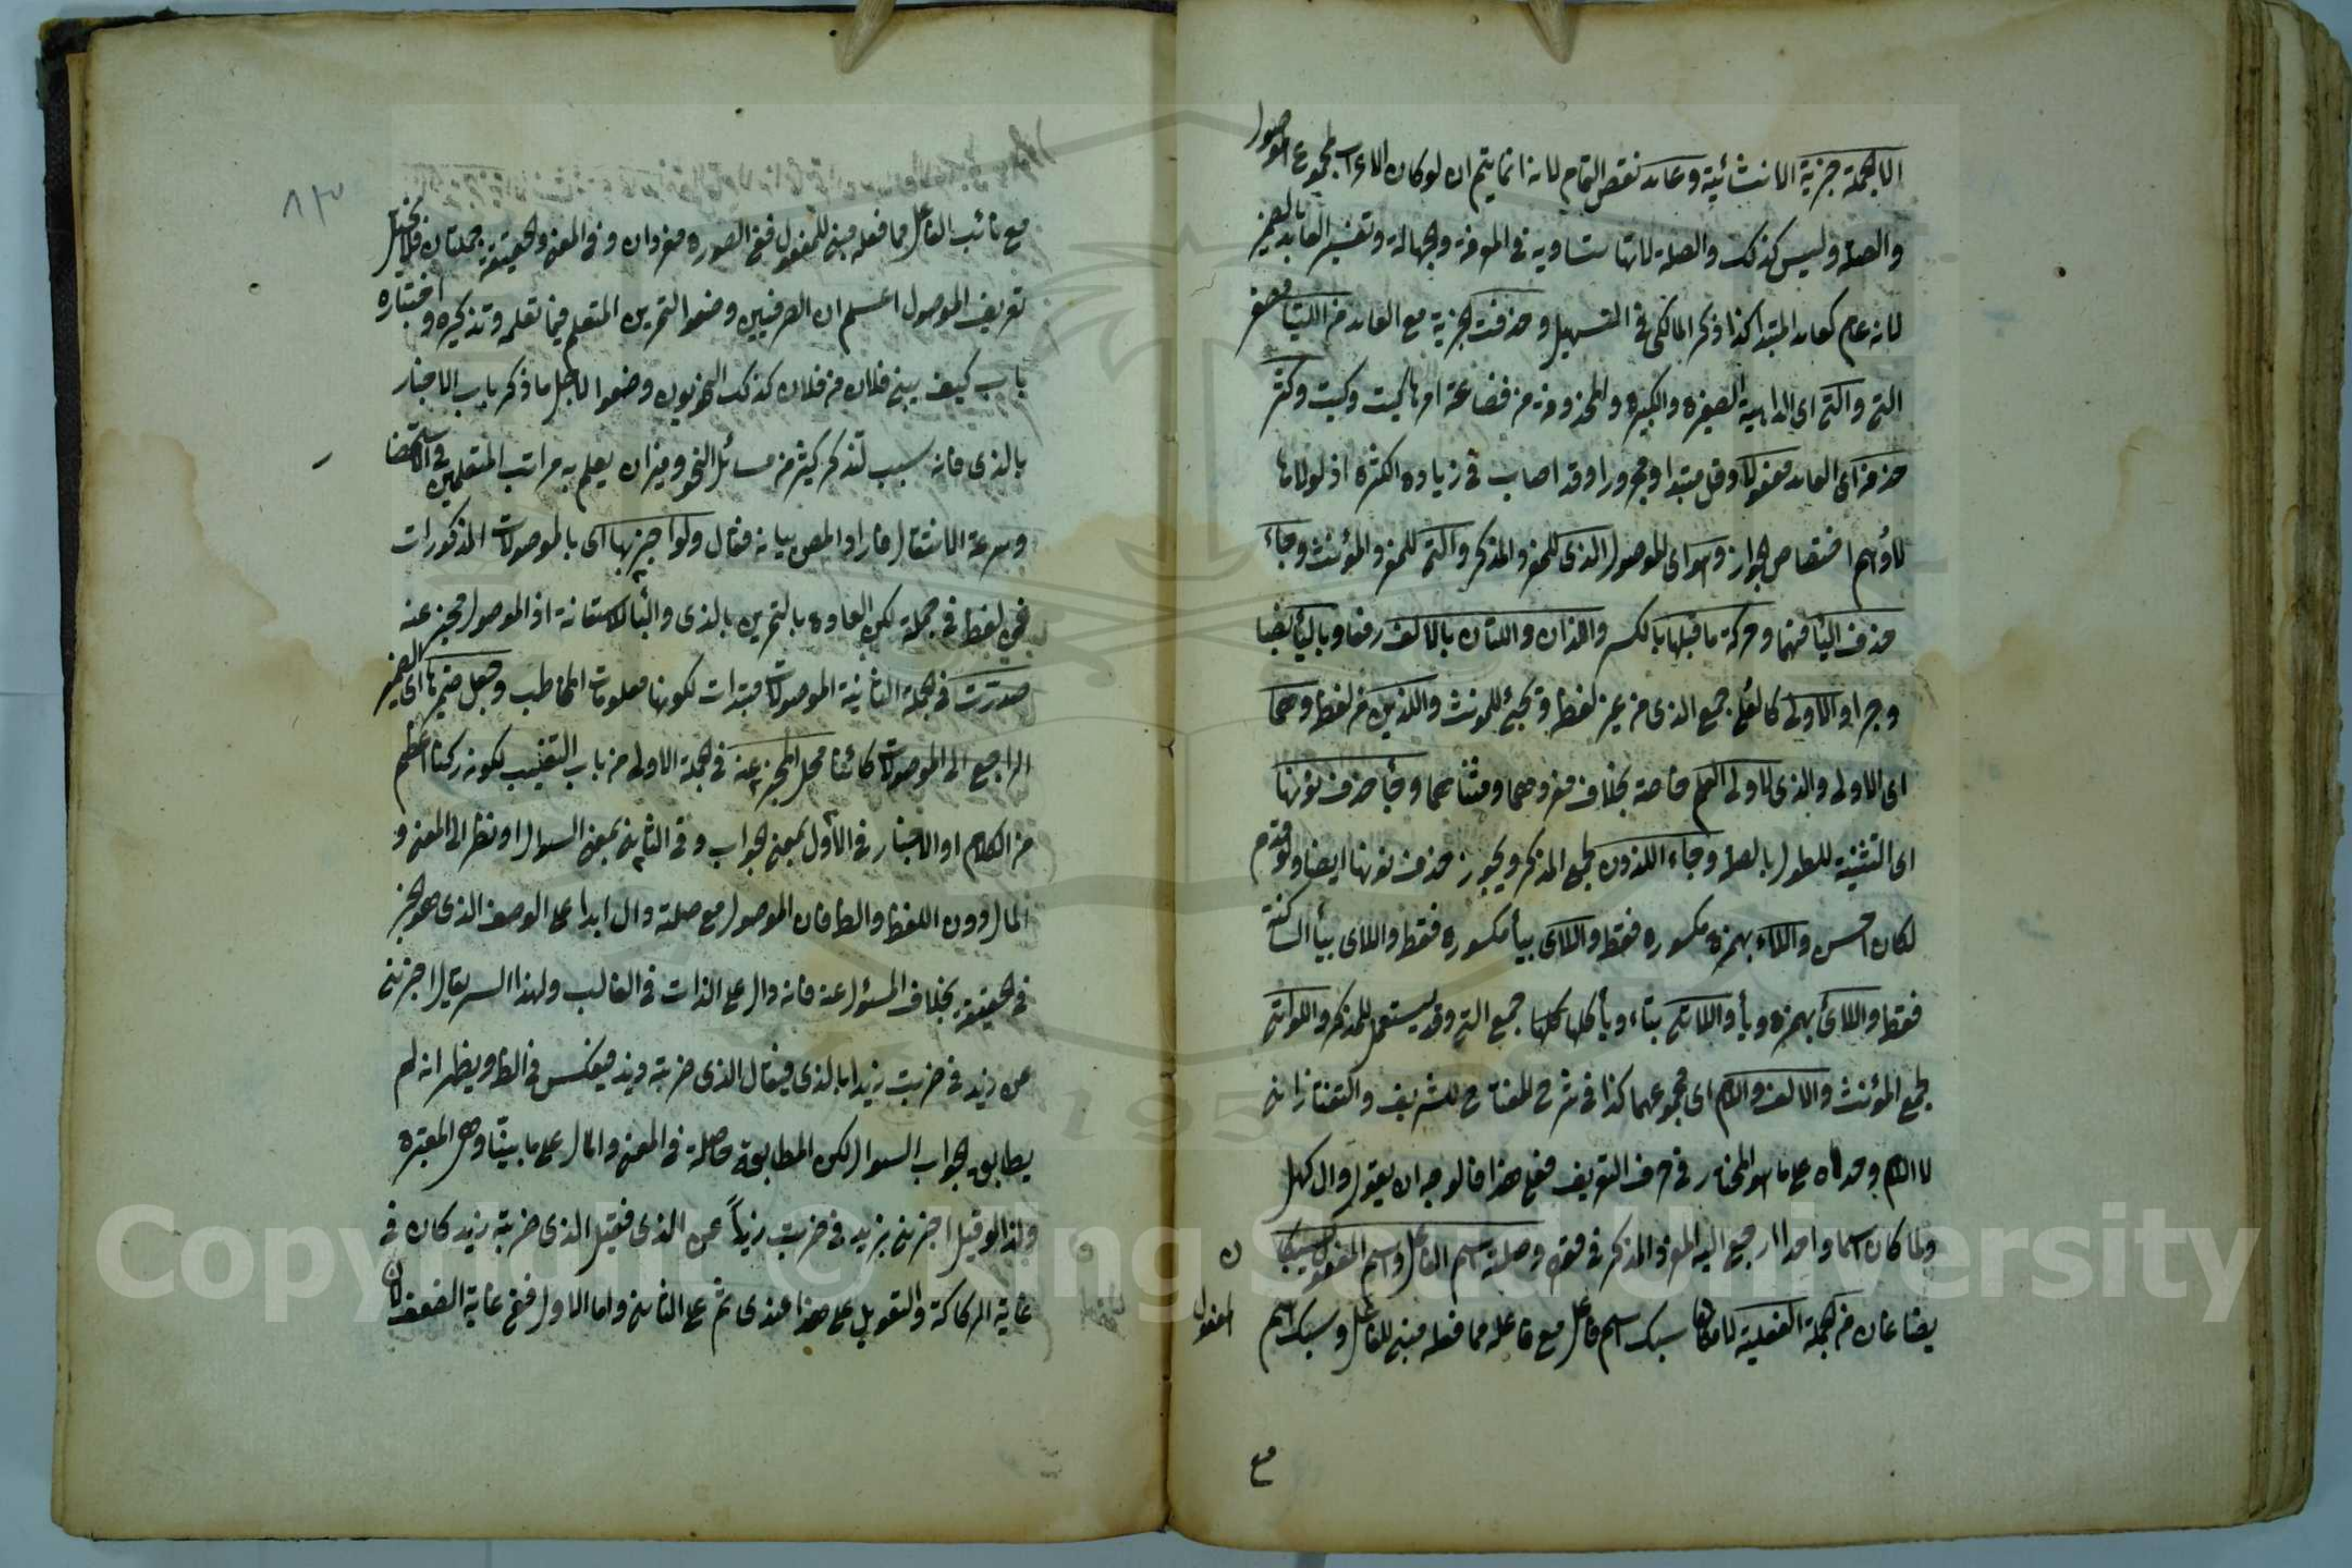 الا بجملة خبرية لا انشائية وعائد نقض التمام لانه انما يتم ان لو كان الاعراب لمجموع الموصول
والصلة وليس كذلك والصلة لانها متساوية في المعرفة والجهالة وتفسير العائد بالضمير
لانه عام كعائد المبتدا كذا ذكر المالكي في التسهيل وحذفت الخبرية مع العائد من اللتيا مصغر
التي والتي اى الداهية الصغيرة والكبيرة والمحذوفة من فضاعة امرها كيت وكيت وكثر
حذفه اى العائد مفعولا وقل مبتدا ومجرورا وقد اصاب في زيادة الكثرة اذ لولاها
لاوهم اختصاص الجواز وهو اى الموصول الذى للمفرد المذكر والتي للمفرد المؤنث وجاء
حذف اليا منهما وحركة ما قبلها بالكسر واللذان واللتان بالالف رفعا وباليا نصبا
وجرا والاولى كالعلى جمع الذى من غير لفظه وتجئ للمونث والذين من لفظه وهما
اى الاولى والذى لاولى العلم خاصة بخلاف مفردهما ومثناهما وجأ حذف نونها
اى التثنية للطول بالصلة وجاء اللذون لجمع المذكر ويجوز حذف نونها ايضا ولو قدم
لكان احسن واللاء بهمزة مكسورة فقط واللاى بيأ مكسورة فقط واللاى بيأ الساكنة
فقط واللائ بهمزه ويأ واللاتى بتاء ويأ كلها جمع التي وقد يستعمل للمذكر واللواتى
لجمع المؤنث والالف واللام اى مجموعهما كذا في شرح المفتاح للشريف والتفتازانى
لا اللام وحدها على ما هو المختار في حرف التعريف فعلى هذا فالوجه ان يقول وال كهل
ولما كان اسما واحدا ارجع اليه المفرد المذكر في قوله وصلته اسم الفاعل واسم المفعول سيبكا
يضا غان من الجملة الفعلية لا مكانها سبك اسم فاعل مع فاعله مما فعله مبنى للفاعل وسبك اسم
المفعول
مع
٨٣
مع نائب الفاعل مما فعله مبنى للمفعول ففي الصورة مفردان وفي المعنى والحقيقة جملتان فلا يختل
تعريف الموصول اعلم ان الصرفيين وضعوا التمرين المتعلم فيما تعلمه وتذكيره واختباره
باب كيف يبنى فلان من فلان كذلك النحويون وضعوا لاجل ما ذكر باب الاخبار
بالذى فانه سبب لتذكر كثير من مسائل النحو وميزان يعلم به مراتب المتعلمين في الاستحضا
وسرعة الانتقال فاراد المص بيانه فقال ولو اخبر بها اى بالموصولات المذكورات
عن لفظ في جملة لكن العادة بالتمرين بالذى والبأ للاستعانة اذ الموصول مخبر عنه
صدرت في الجملة الثانية الموصولات مبتدات لكونها معلومات المخاطب وجعل ضميرها اى الضمير
الراجع الى الموصولات كائنا محل المخبر عنه في الجملة الاولى من باب التغليب لكونه ركنا اعظم
من الكلام او الاخبار في الاول بمعنى الجواب وفي الثانى بمعنى السوال او نظر الى المعنى و
المال دون اللفظ والظ فان الموصول مع صلته دال ابدا على الوصف الذى هو الخبر
في الحقيقة بخلاف المسؤل عنه فانه دال على الذات في الغالب ولهذا السر يقال اخبرنى
عن زيد في ضربت زيدا بالذى فيقال الذى ضربته زيد فيعكس في الظ ويظهر انه لم
يطابق الجواب السوال لكن المطابقة حاصلة في المعنى والمال على ما بيّنا وهى المعتبرة
ولذا لو قيل اخبرنى بزيد في ضربت زيداً عن الذى فقيل الذى ضربته زيد كان في
غاية الركاكة والتعويل على هذا عندى ثم على الثانى واما الاول ففي غاية الضعف لان